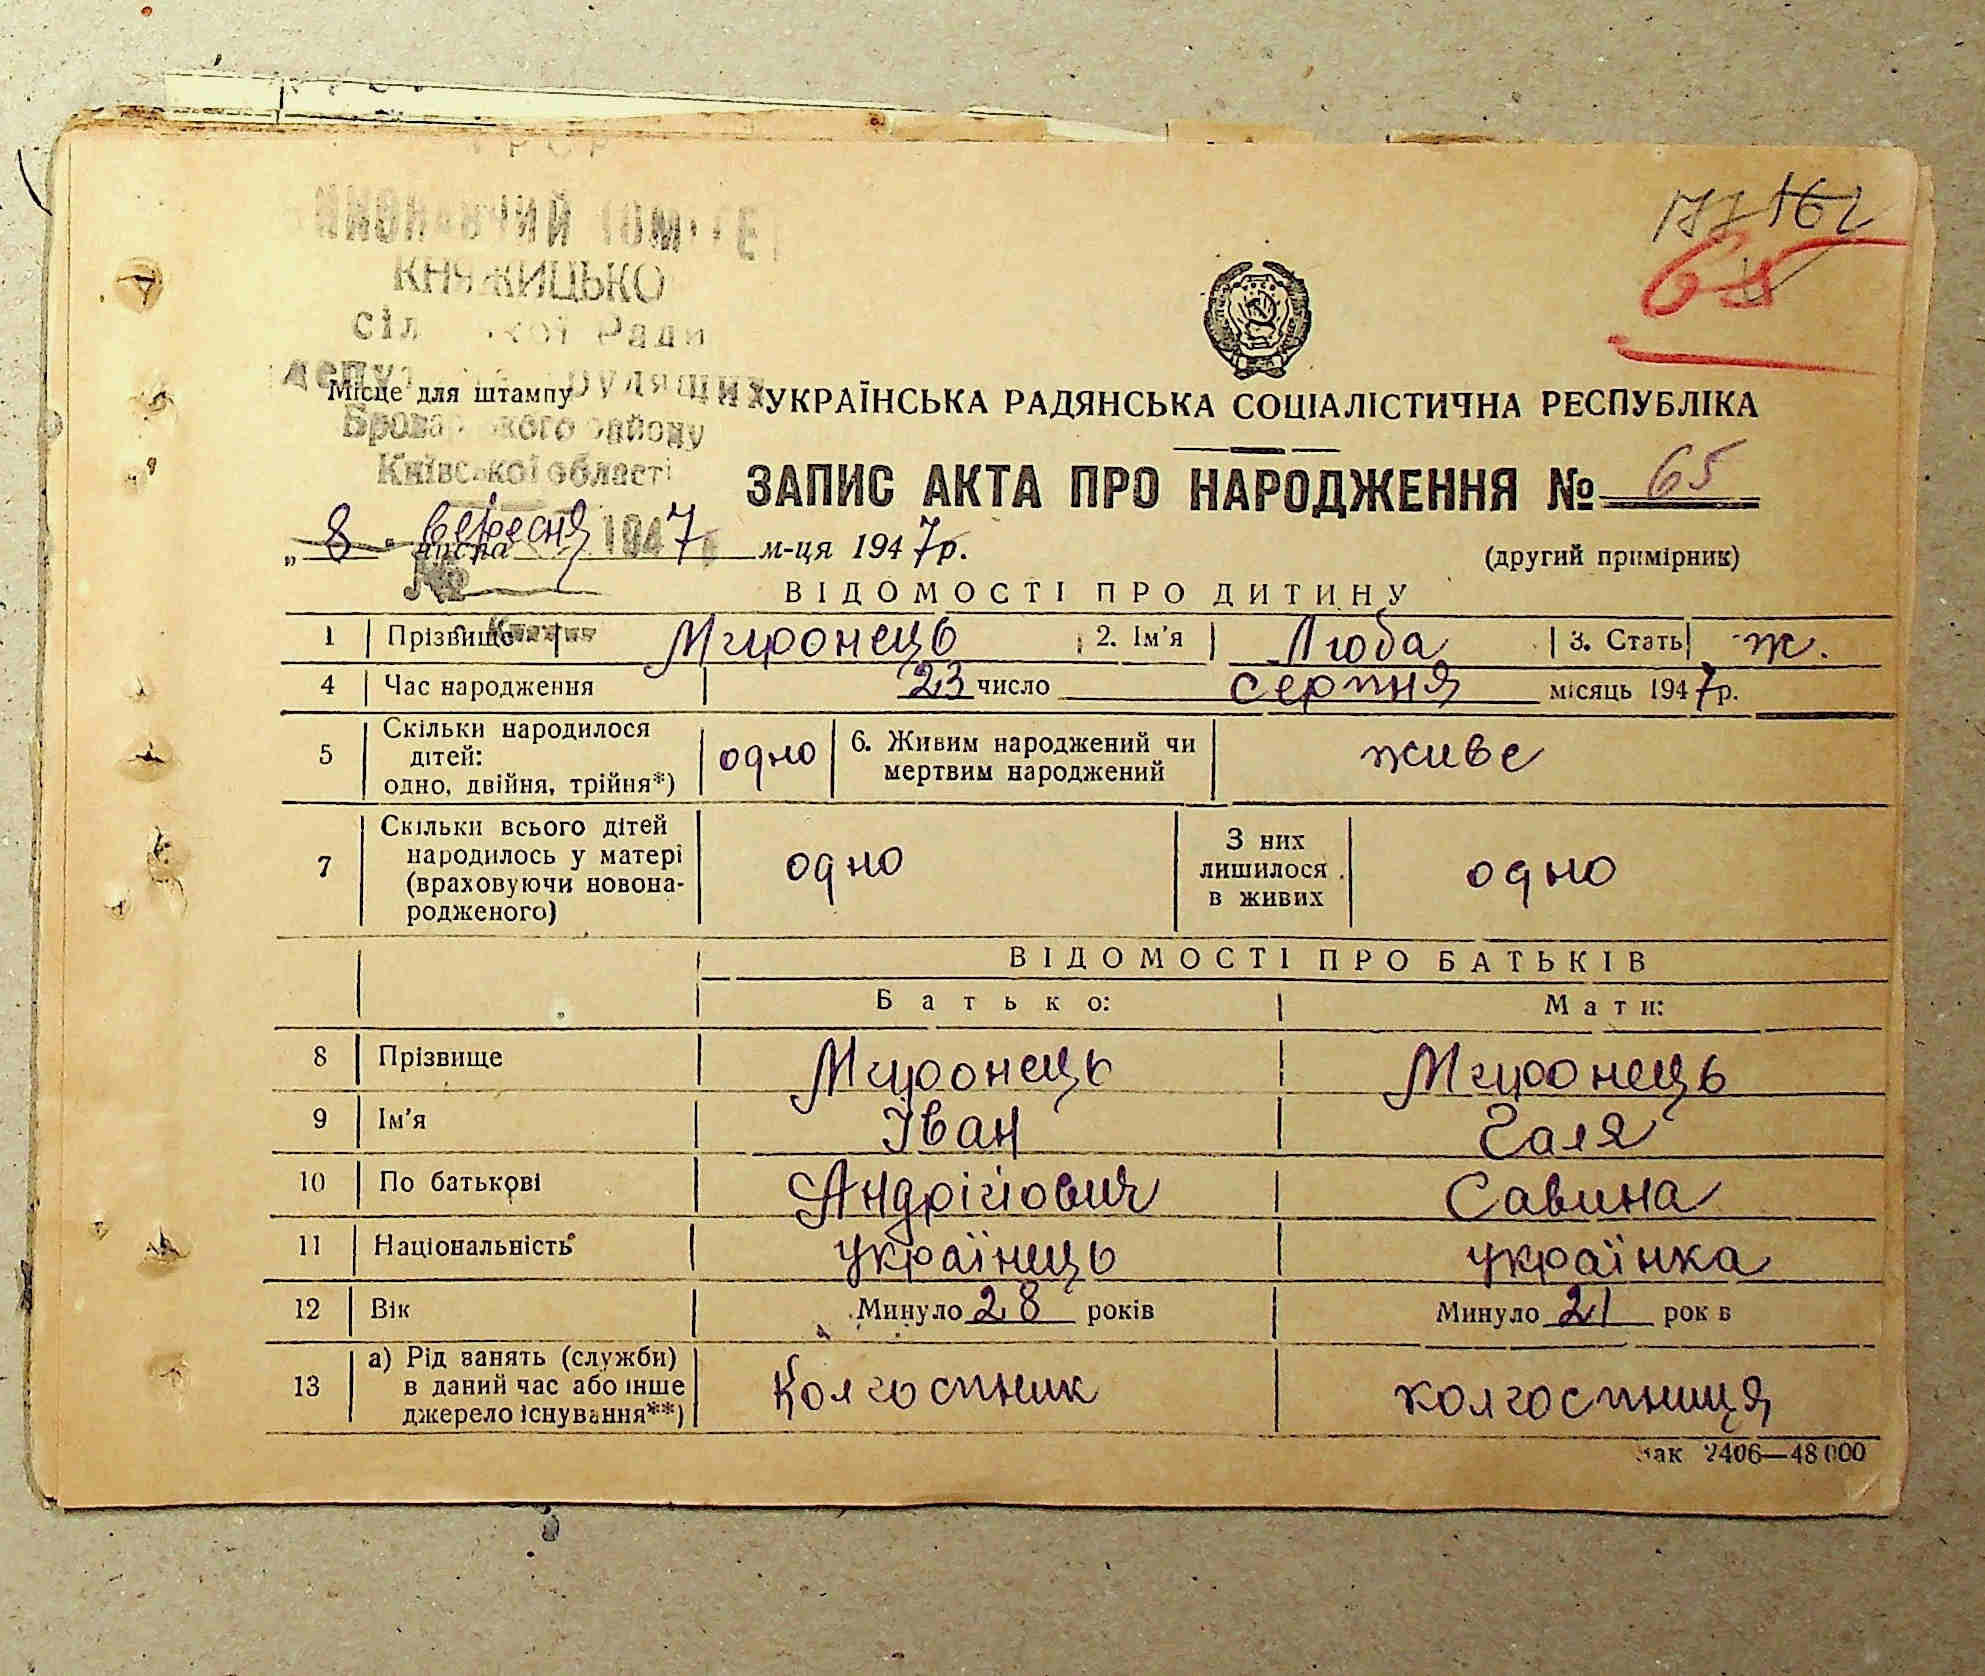 177 162
65
КНЯЖИЦЬКО
Ради
Місце для штампу
УКРАЇНСЬКА РАДЯНСЬКА СОЦІАЛІСТИЧНА РЕСПУБЛІКА
району
Київської області
ЗАПИС АКТА ПРО НАРОДЖЕННЯ № 65
„ 8 " вересня 1947 м-ця 1947р.
(другий примірник)
№
ВІДОМОСТІ ПРО ДИТИНУ
1 Прізвище Миронець 2. Ім'я Люба 3. Стать ж.
4 Час народження 23 число серпня місяць 1947р.
5 Скільки народилося дітей: одно, двійня, трійня*) одно 6. Живим народжений чи мертвим народжений живе
7 Скільки всього дітей народилось у матері (враховуючи новонародженого) одно З них лишилося в живих одно
ВІДОМОСТІ ПРО БАТЬКІВ
Батько: Мати:
8 Прізвище Миронець Миронець
9 Ім'я Іван Галя
10 По батькові Андрійович Савина
11 Національність українець українка
12 Вік Минуло 28 років Минуло 21 років
13 а) Рід занять (служби) в даний час або інше джерело існування**) Колгоспник колгоспниця
Зак 2406—48 000